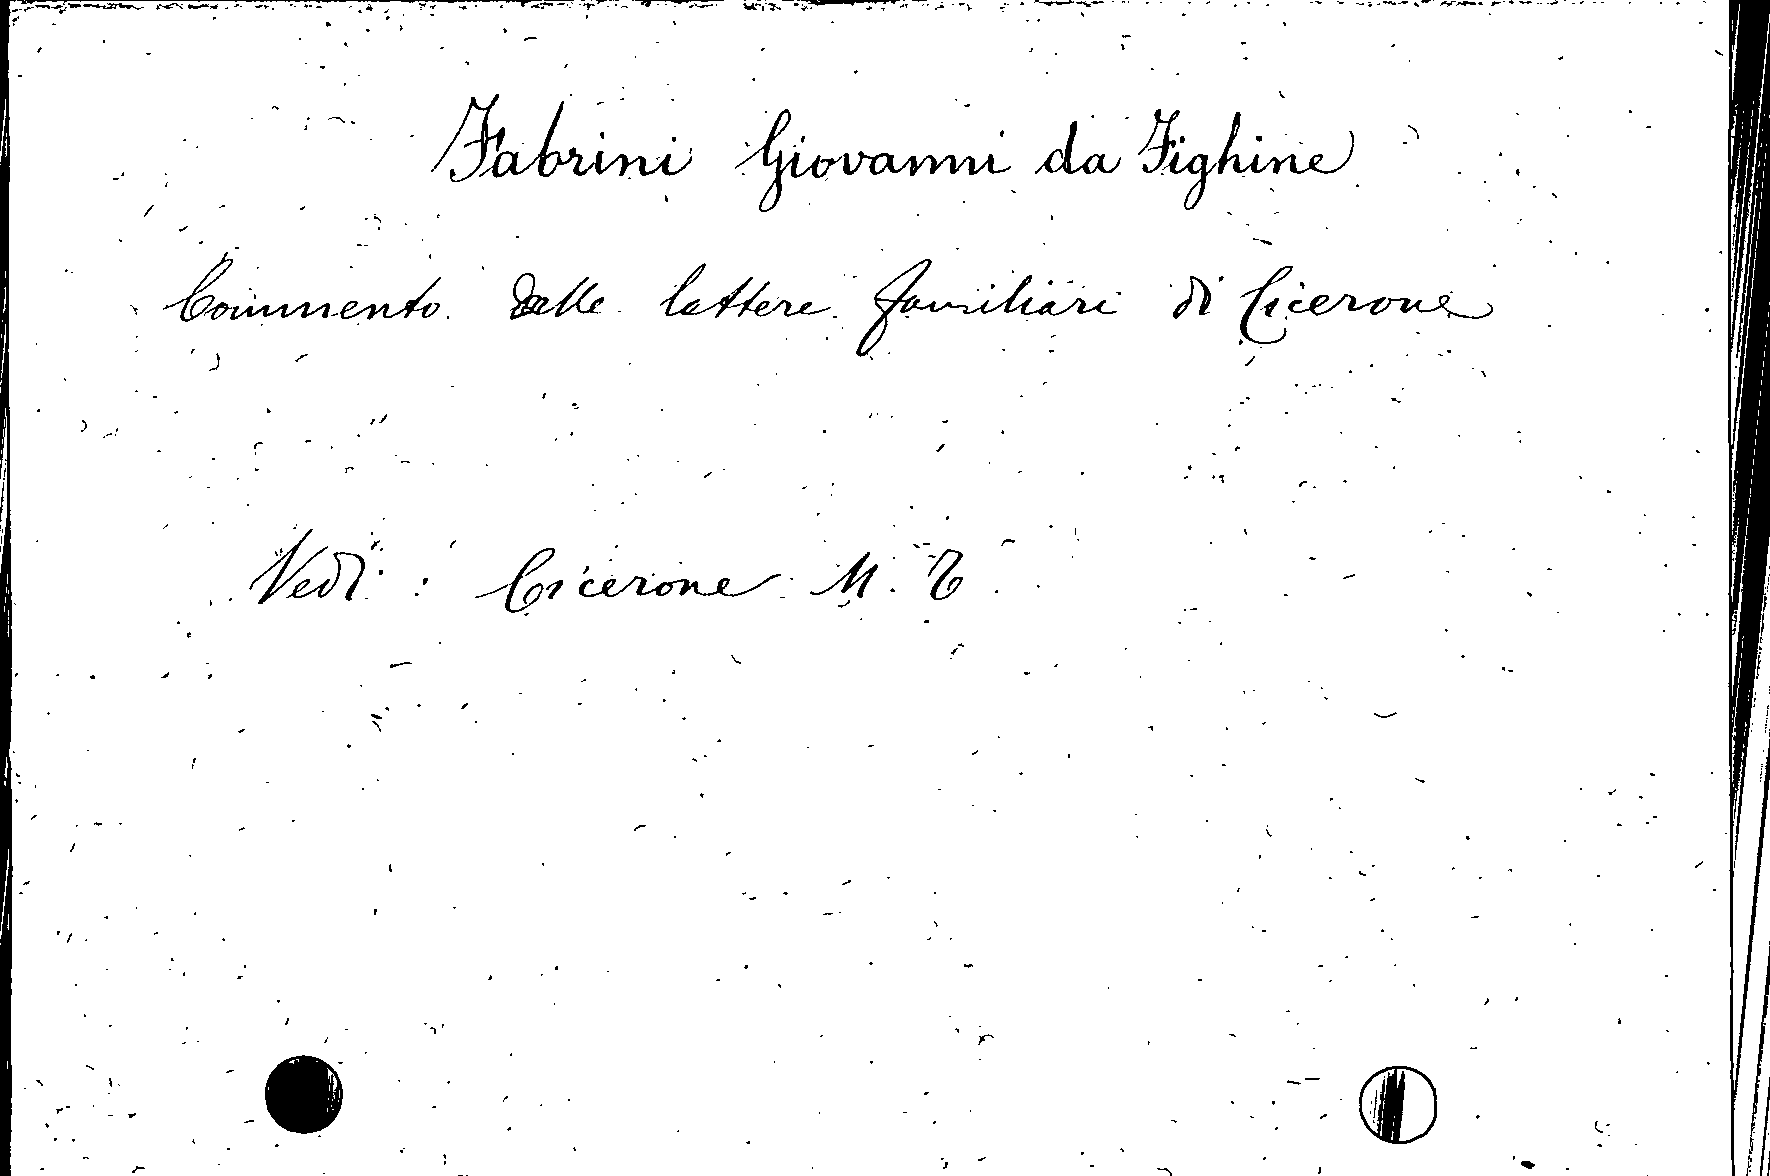 Fabrini Giovanni da Fighine
Commento delle lettere familiari di Cicerone
Vedi: Cicerone M. T.